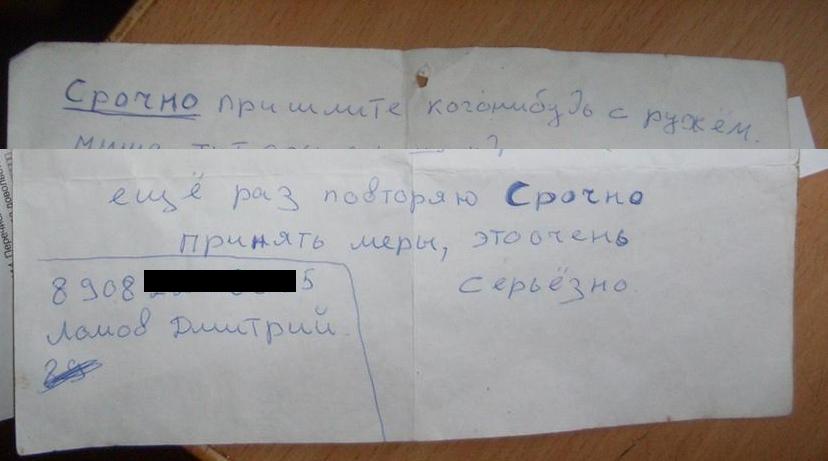 Срочно пришлите когонибудь с ружём.
ещё раз повторяю Срочно
принять меры, это очень
серьёзно.
8908 5
Ламов Дмитрий.